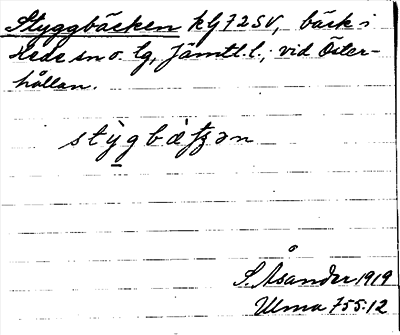 Styggbäcken kG72SV, bäck i
Hede sn o. lg, Jämtl. l.; vid Öster-
hållan.
stỳgbæ̀tʃən
S. Åsander 1919
Ulma 755:12